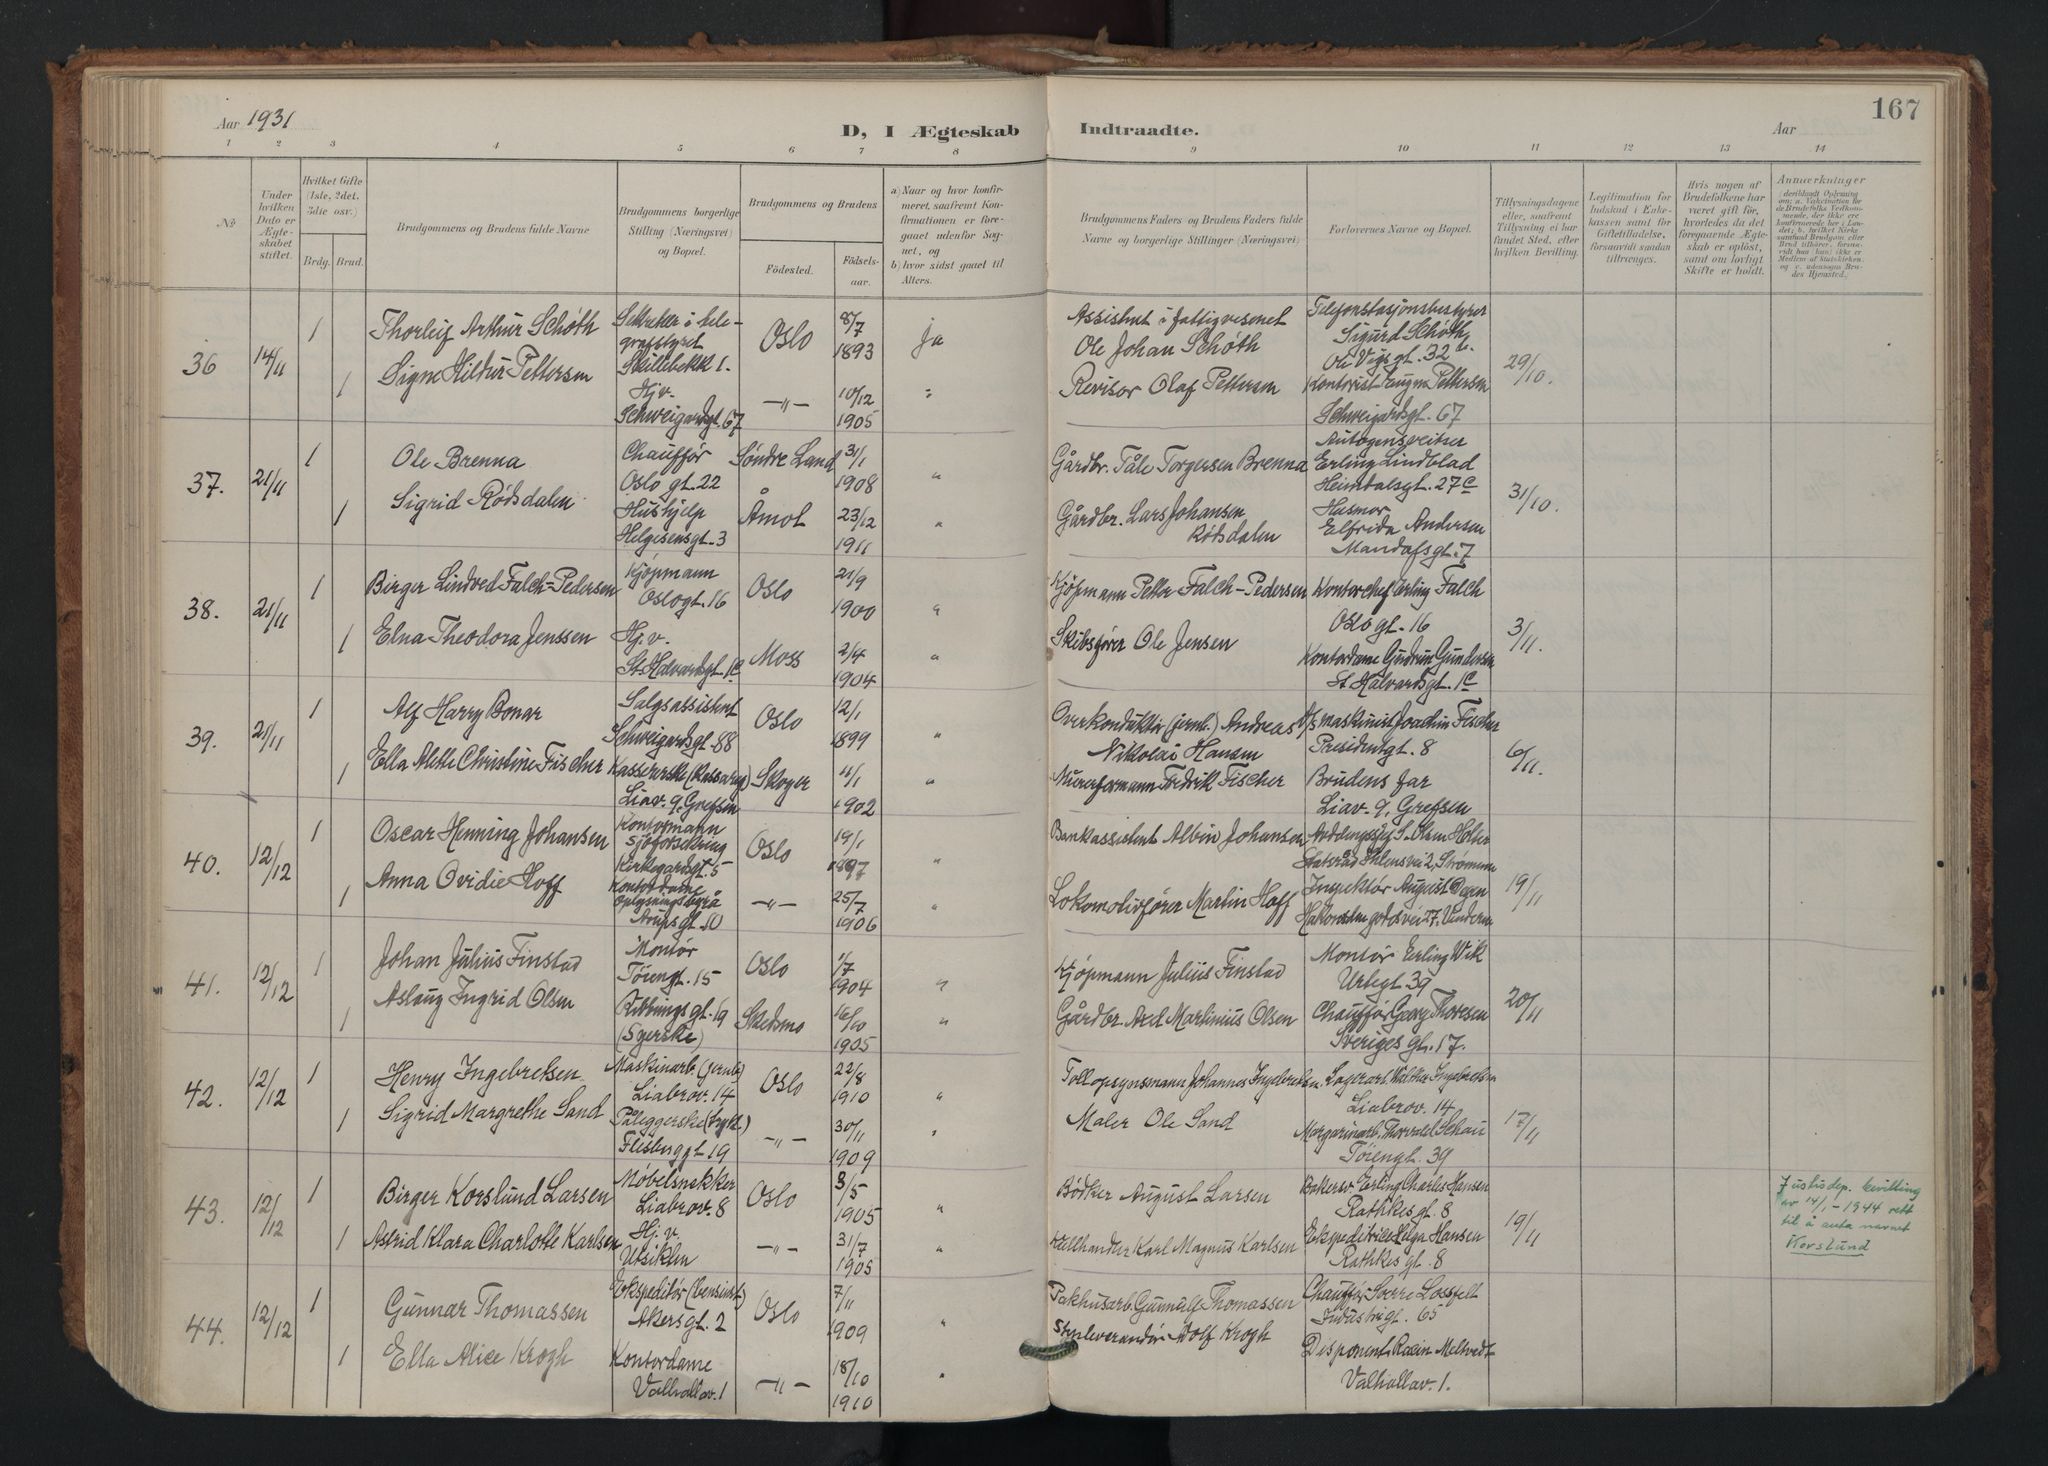 Aar 1931
D, I Ægteskab Indtraadte.
Aar
167
1 2 3 4 5 6 7 8 9 10 11 12 13 14
№
Under hvilken Dato er Ægteskabet stiftet.
Hvilket Gifte (1ste, 2det, 3die osv.)
Brdg. Brud.
Brudgommens og Brudens fulde Navne
Brudgommens borgerlige Stilling (Næringsvei) og Bopæl.
Brudgommens og Brudens
Fødested.
Fødselsaar.
a) Naar og hvor konfirmeret, saafremt Konfirmationen er foregaaet udenfor Sognet, og
b) hvor sidst gaaet til Alters.
Brudgommens Faders og Brudens Faders fulde Navne og borgerlige Stillinger (Næringsvei)
Forlovernes Navne og Bopæl.
Tillysningsdagene eller, saafremt Tillysning ei har fundet Sted, efter hvilken Bevilling.
Legitimation for Indskud i Enkekassen samt for Giftetilladelse, forsaavidt saadan tiltrænges.
Hvis nogen af Brudefolkene har været gift før, hvorledes da det foregaaende Ægteskab er opløst, samt om lovligt Skifte er holdt.
Anmærkninger
36 14/11 1 Thorleif Arthur Schøth
Sekretær i telegrafstyret
Skillebekk 1.
Oslo 8/7 1893 ja
Assistent i fattigvesenet
Ole Johan Schøth
Telefonstasjonsbestyrer
Sigurd Schøth
Ole Vigsgt. 32
29/10.
1 Signe Hildur Pettersen
Hj.v.
Schweigaardsgt. 67
—"— 10/12 1905 "
Revisor Olaf Pettersen
Kontorist Pettersen
Schweigardsgt. 67
37. 21/11 1 Ole Brenna
Chauffør
Oslo gt. 22
Søndre Land 31/1 1908 "
Gårdbr. Tåle Torgersen Brenna
Autogensveiser
Erling Lindblad
Heimdalsgt. 27c
31/10.
1 Sigrid Rødsdalen
Hushjelp
Helgesensgt. 3
Åmot 23/12 1911 "
Gårdbr. Lars Johansen
Rødsdalen
Husmor
Elfrida Andersen
Mandalsgt. 7
38. 21/11 1 Birger Lindved Falch-Pedersen
Kjøpmann
Oslogt. 16
Oslo 21/9 1900 "
Kjøpmann Petter Falch-Pedersen
Kontorchef Erling Falch
Oslo gt. 16
3/11.
1 Elna Theodora Jenssen
Hj.v.
St. Halvardsgt. 1c
Moss 2/4 1904 "
Skibsfører Ole Jensen
Kontordame Gudrun Gundersen
St. Halvardsgt. 1c
39. 21/11 1 Alf Harry Bonar
Salgsassistent
Schweigardsgt. 88
Oslo 12/1 1899 "
Overkonduktør (jernb.) Andreas
Nikolai Hansen
maskinist Joachim Fischer
Presidentgt. 8
6/11.
1 Ella Alette Christine Fischer
Kassererske
Liav. 9, Grefsen
Skoger 4/1 1902 "
Murerformann Fredrik Fischer
Brudens far
Liav. 9, Grefsen
40. 12/12 1 Oscar Henning Johansen
Kontormann
sjøforsekring
Kirkegardsgt. 5
Oslo 19/1 1897 "
Bankassistent Albin Johansen
Holter
Statsråd Ihlensvei 2, Strømmen
19/11
1 Anna Ovidie Hoff
Kontordame
oplysningsbyrå
Arupsgt. 10
—"— 25/7 1906 "
Lokomotivfører Martin Hoff
Inspektør August Degen
Vinderen
41. 12/12 1 Johan Julius Finstad
Montør
Tøiengt. 15
Oslo 1/7 1904 "
Kjøpmann Julius Finstad
Montør Erling Wik
Urtegt. 39
20/11
1 Aslaug Ingrid Olsen
Ribbingsgt. 19
(Syerske)
Skedsmo 16/10 1905 "
Gårdbr. Axel Martinius Olsen
Chauffør Georg Thoresen
Sveriges gt. 17.
42. 12/12 1 Henry Ingebretsen
Maskinarb. (jernb.)
Liabrov. 14
Oslo 22/8 1910 "
Tollopsynsmann Johannes Ingebretsen
Lagerarb. Walther Ingebretsen
Liabrov. 14
17/11
1 Sigrid Margrethe Sand
Påleggerske (trykk.)
Flisberggt 19
—"— 30/11 1909 "
Maler Ole Sand
Margarinarb. Thorvald Schau
Tøiengt. 39
43. 12/12 1 Birger Korslund Larsen
Møbelsnekker
Liabrov. 8
Oslo 3/5 1905 "
Bødker August Larsen
Bakersv. Erling Charles Hansen
Rathkesgt. 8
19/11
Justisdep. bevilling
av 14/1-1944 rett
til å anta navnet
Korslund
1 Astrid Klara Charlotte Karlsen
Hj.v.
Utsikten
—"— 31/7 1905 "
Karl Magnus Karlsen
Ekspeditrice Helga Hansen
Rathkes gt. 8
44. 12/12 1 Gunnar Thomassen
Ekspeditør (bensinst.)
Akersgt. 2
Oslo 7/11 1909 "
Pakhusarb. Gunnulf Thomassen
Chauffør Sverre Lossfelt
Industrigt. 65
1 Ella Alice Krogh
Kontordame
Valhallav. 1
—"— 18/10 1910 "
Adolf Krogh
Disponent Meltvedt
Valhallav. 1.